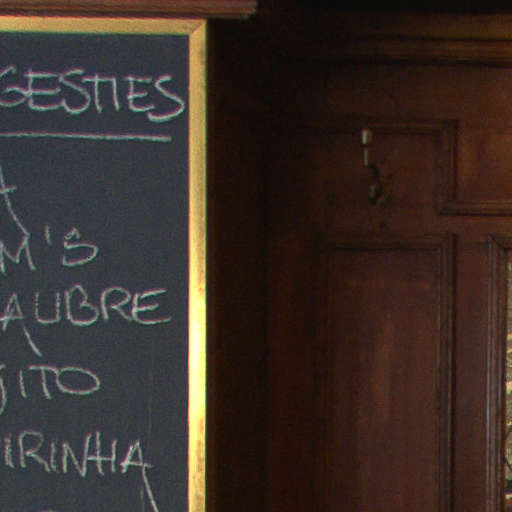 GESTIES
A
M'S
AUBRE
JITO
IRINHA